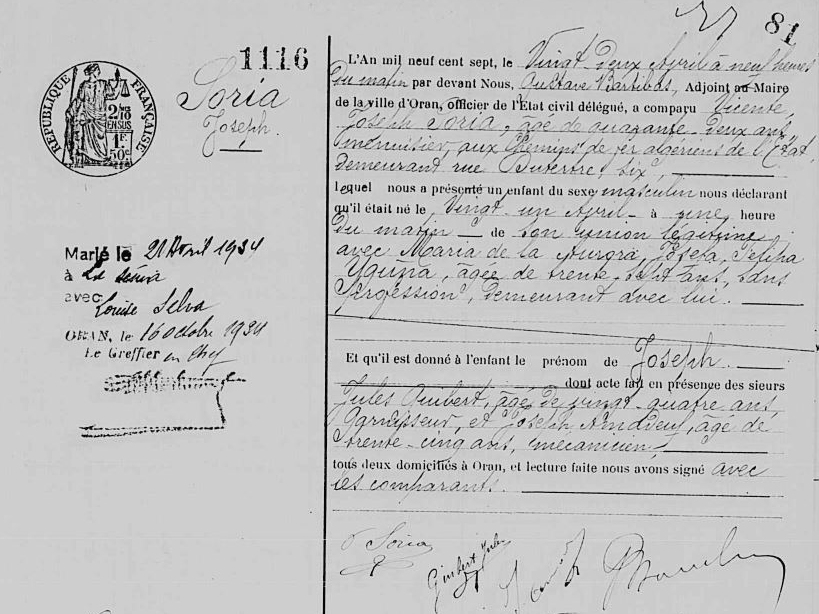 81
1116
RÉPUBLIQUE FRANÇAISE
2/10 EN SUS
1F 50c
Soria
Joseph.
L'An mil neuf cent sept, le Vingt deux Avril à neuf heures
du matin par devant Nous, Gustave Bartibas, Adjoint au Maire
de la ville d'Oran, officier de l'État civil délégué, a comparu Vicente,
Joseph Soria, âgé de quarante-deux ans,
menuisier, aux Chemins de fer algériens de l'État,
demeurant rue Duterrre, six,
lequel nous a présenté un enfant du sexe masculin nous déclarant
qu'il était né le, Vingt un Avril - à une heure
du matin - de son union légitime
avec Maria de la Aurora, Josefa,
âgée de trente-sept ans, sans
profession, demeurant avec lui.
Et qu'il est donné à l'enfant le prénom de Joseph.
dont acte fait en présence des sieurs
Jules Guibert, âgé de vingt-quatre ans,
garnisseur, et Joseph Arnadieu, âgé de
trente-cinq ans, mécanicien,
tous deux domiciliés à Oran, et lecture faite nous avons signé avec
les comparants.
Marié le 21 Avril 1934
à La Sénia
avec Louise Selva
ORAN, le 16 Octobre 1934
Le Greffier en Chef
Soria
Guibert Jules